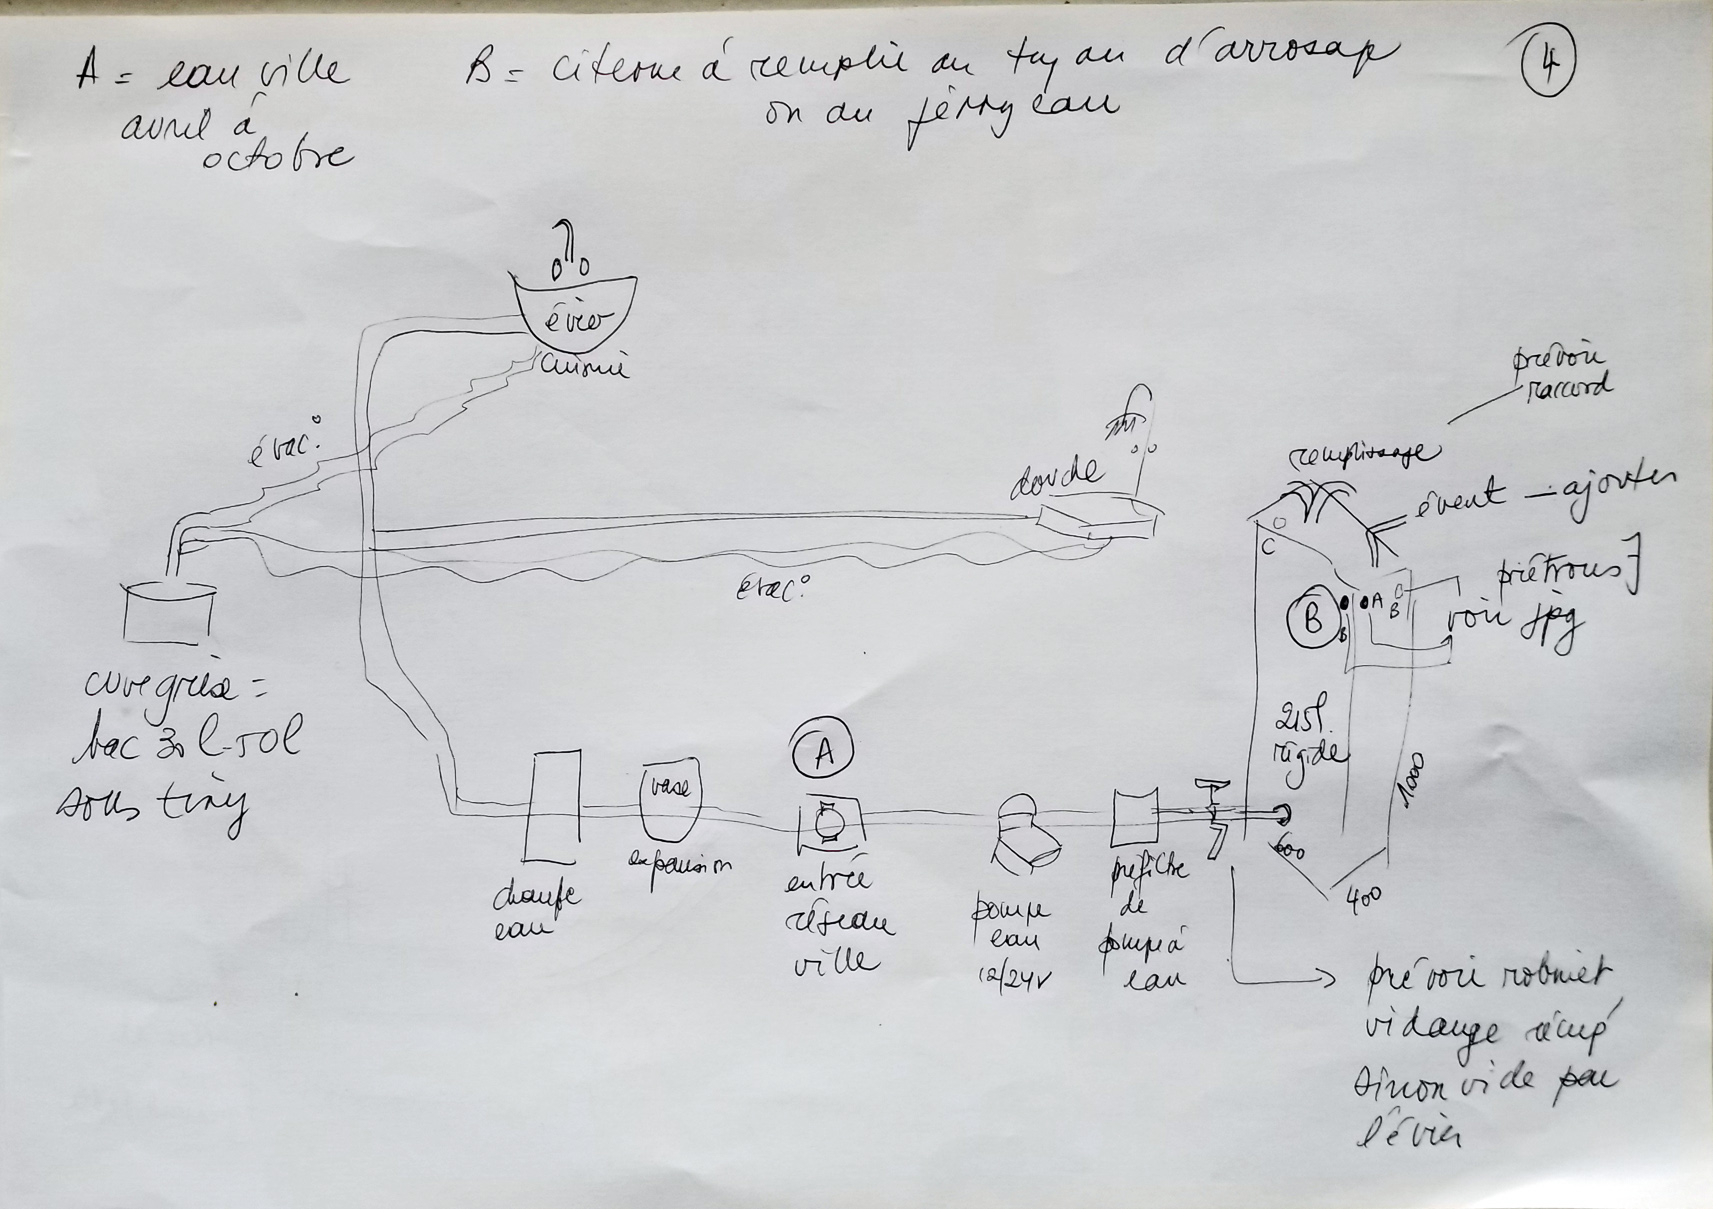 A = eau ville
avril à
octobre
B = citerne à remplir au tuyau d'arrosage
ou au jerry eau
4
évier
cuisine
évac°
douche
évac°
prévoir
raccord
remplissage
évent – ajouter
C
B
A
B
B
prétrous]
voir jpg
cuve grise =
bac 30 l-50l
sous tiny
215l.
rigide
1000
600
400
A
vase
expansion
chauffe
eau
entrée
réseau
ville
pompe
eau
12/24V
préfiltre
de
pompe à
eau
prévoir robinet
vidange récup
sinon vide par
l'évier